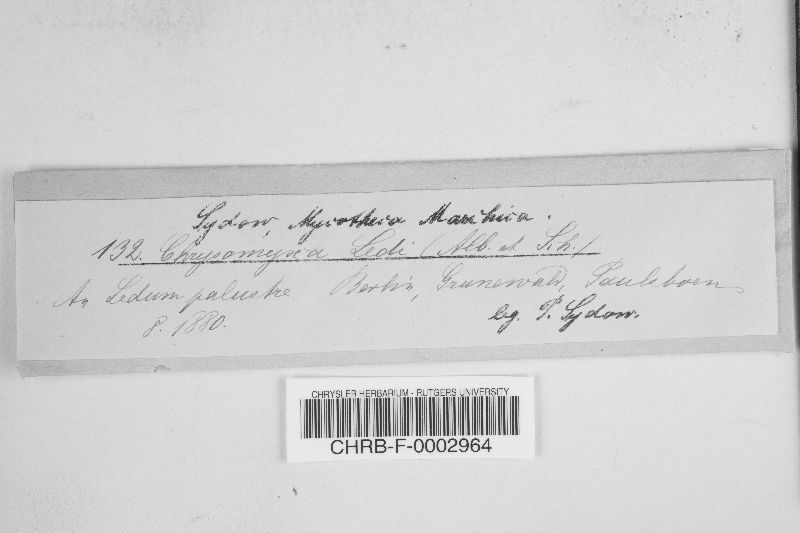 Sydow, Mycotheca Marchica.
132. Chrysomyxa Ledi (Alb. et Sch.)
An Ledum palustre Berlin, Grunewald, Paulsborn
8. 1880.
lg. P. Sydow.
CHRYSLER HERBARIUM - RUTGERS UNIVERSITY
CHRB-F-0002964